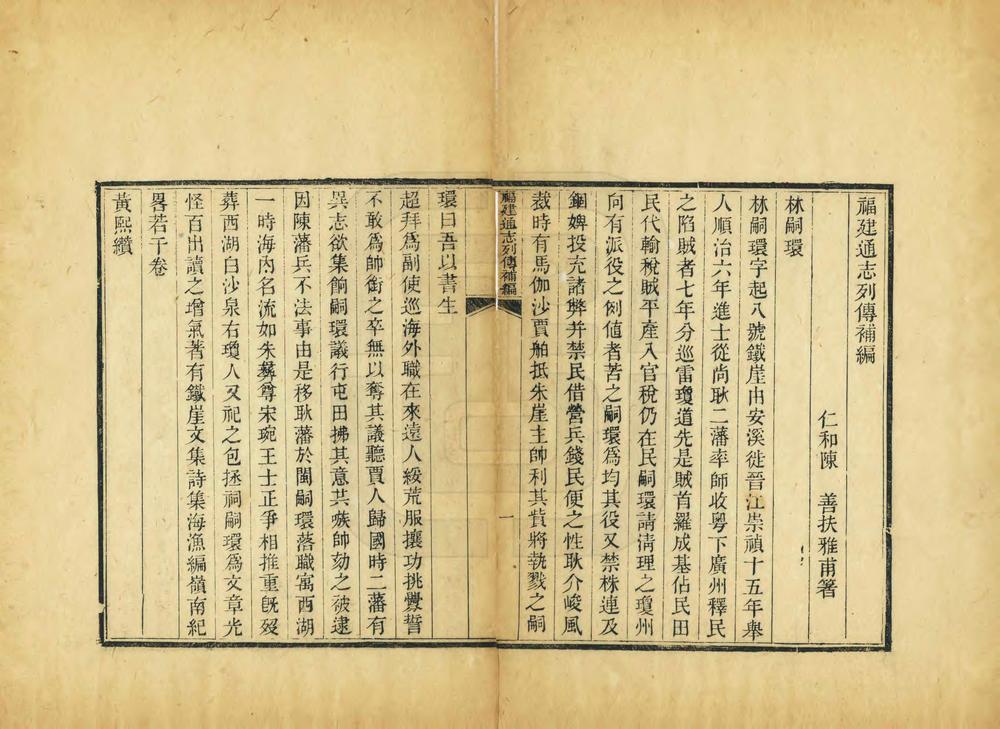 福建通志列傳補編
仁和陳　善扶雅甫箸
林嗣環
林嗣環字起八號鐵崖由安溪徙晉江崇禎十五年舉
人順治六年進士從尚耿二藩率師收粵下廣州釋民
之陷賊者七年分巡雷瓊道先是賊首羅成基佔民田
民代輸稅賊平產入官稅仍在民嗣環請清理之瓊州
向有派役之例值者苦之嗣環爲均其役又禁株連及
錮婢投充諸弊并禁民借營兵錢民便之性耿介峻風
裁時有馬伽沙賈舶抵朱崖主帥利其貲將執戮之嗣
福建通志列傳補編
一
環曰吾以書生
超拜爲副使巡海外職在來遠人綏荒服攘功挑釁誓
不敢爲帥銜之卒無以奪其議聽賈人歸國時二藩有
異志欲集餉嗣環議行屯田拂其意共嗾帥劾之被逮
因陳藩兵不法事由是移耿藩於閩嗣環落職寓西湖
一時海內名流如朱彝尊宋琬王士正爭相推重旣歿
葬西湖白沙泉右瓊人又祀之包拯祠嗣環爲文章光
怪百出讀之增氣著有鐵崖文集詩集海漁編嶺南紀
畧若干卷
黃熙纘